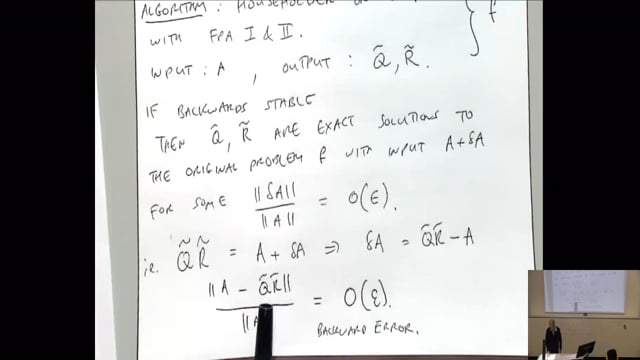 ALGORITHM: HOUSEHOLDER
WITH FPA I & II.
INPUT: A, OUTPUT: Q̃, R̃.
IF BACKWARDS STABLE
THEN Q̃, R̃ ARE EXACT SOLUTIONS TO
THE ORIGINAL PROBLEM f WITH INPUT A+δA
FOR SOME ||δA|| / ||A|| = O(ε).
i.e. Q̃R̃ = A + δA ⇒ δA = Q̃R̃ − A
||A − Q̃R̃|| / ||A = O(ε).
BACKWARD ERROR.